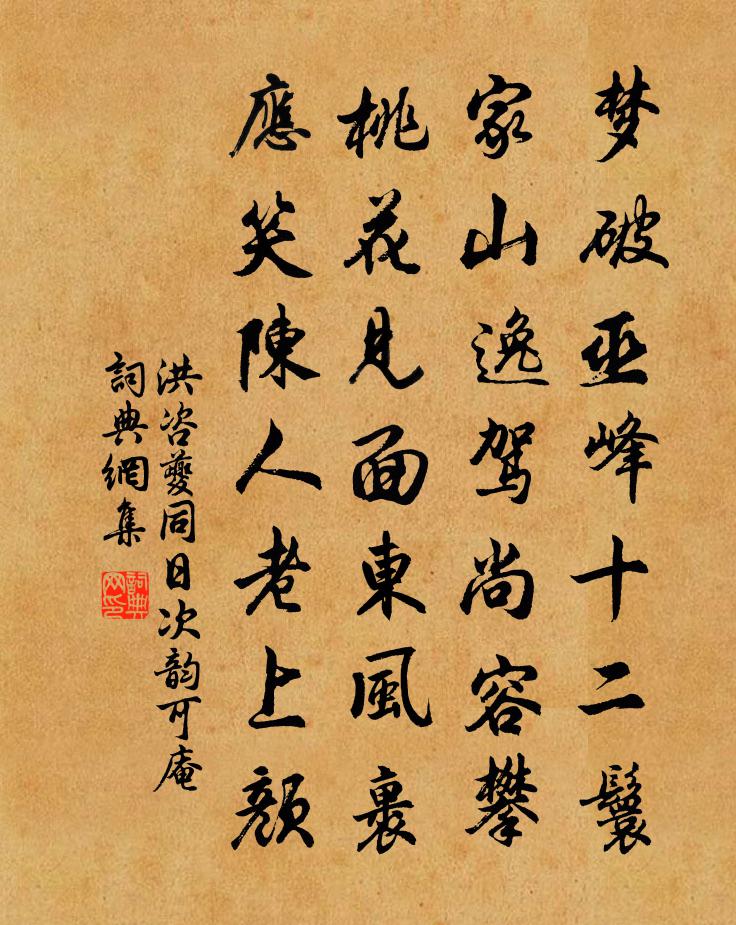 梦破巫峰十二鬟
家山逸驾尚容攀
桃花見面東風裏
應笑陳人老上顔
洪咨夔同日次韵可庵
詞典網集
詞典网印